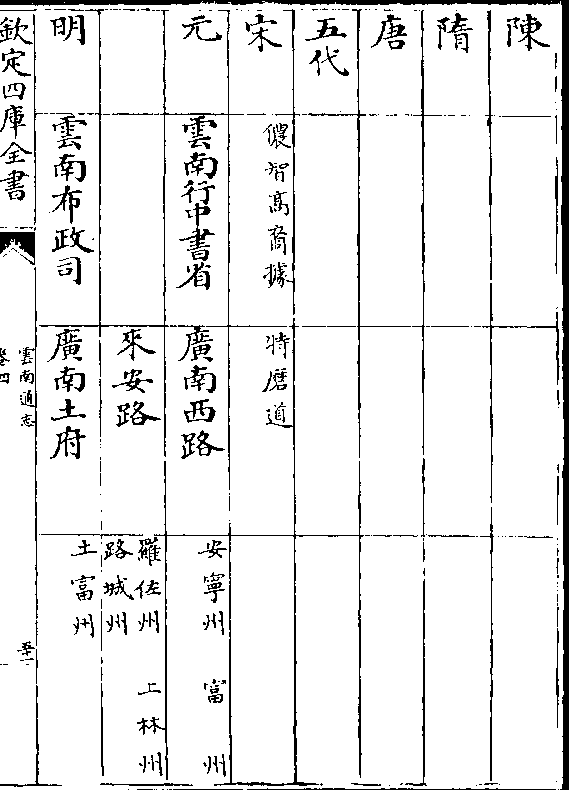 陳
隋
唐
五代
宋
儂智高裔據
特磨道
元
雲南行中書省
廣南西路
安寧州 富州
來安路
羅佐州 上林州
路城州
明
雲南布政司
廣南土府
土富州
欽定四庫全書
雲南通志
卷四